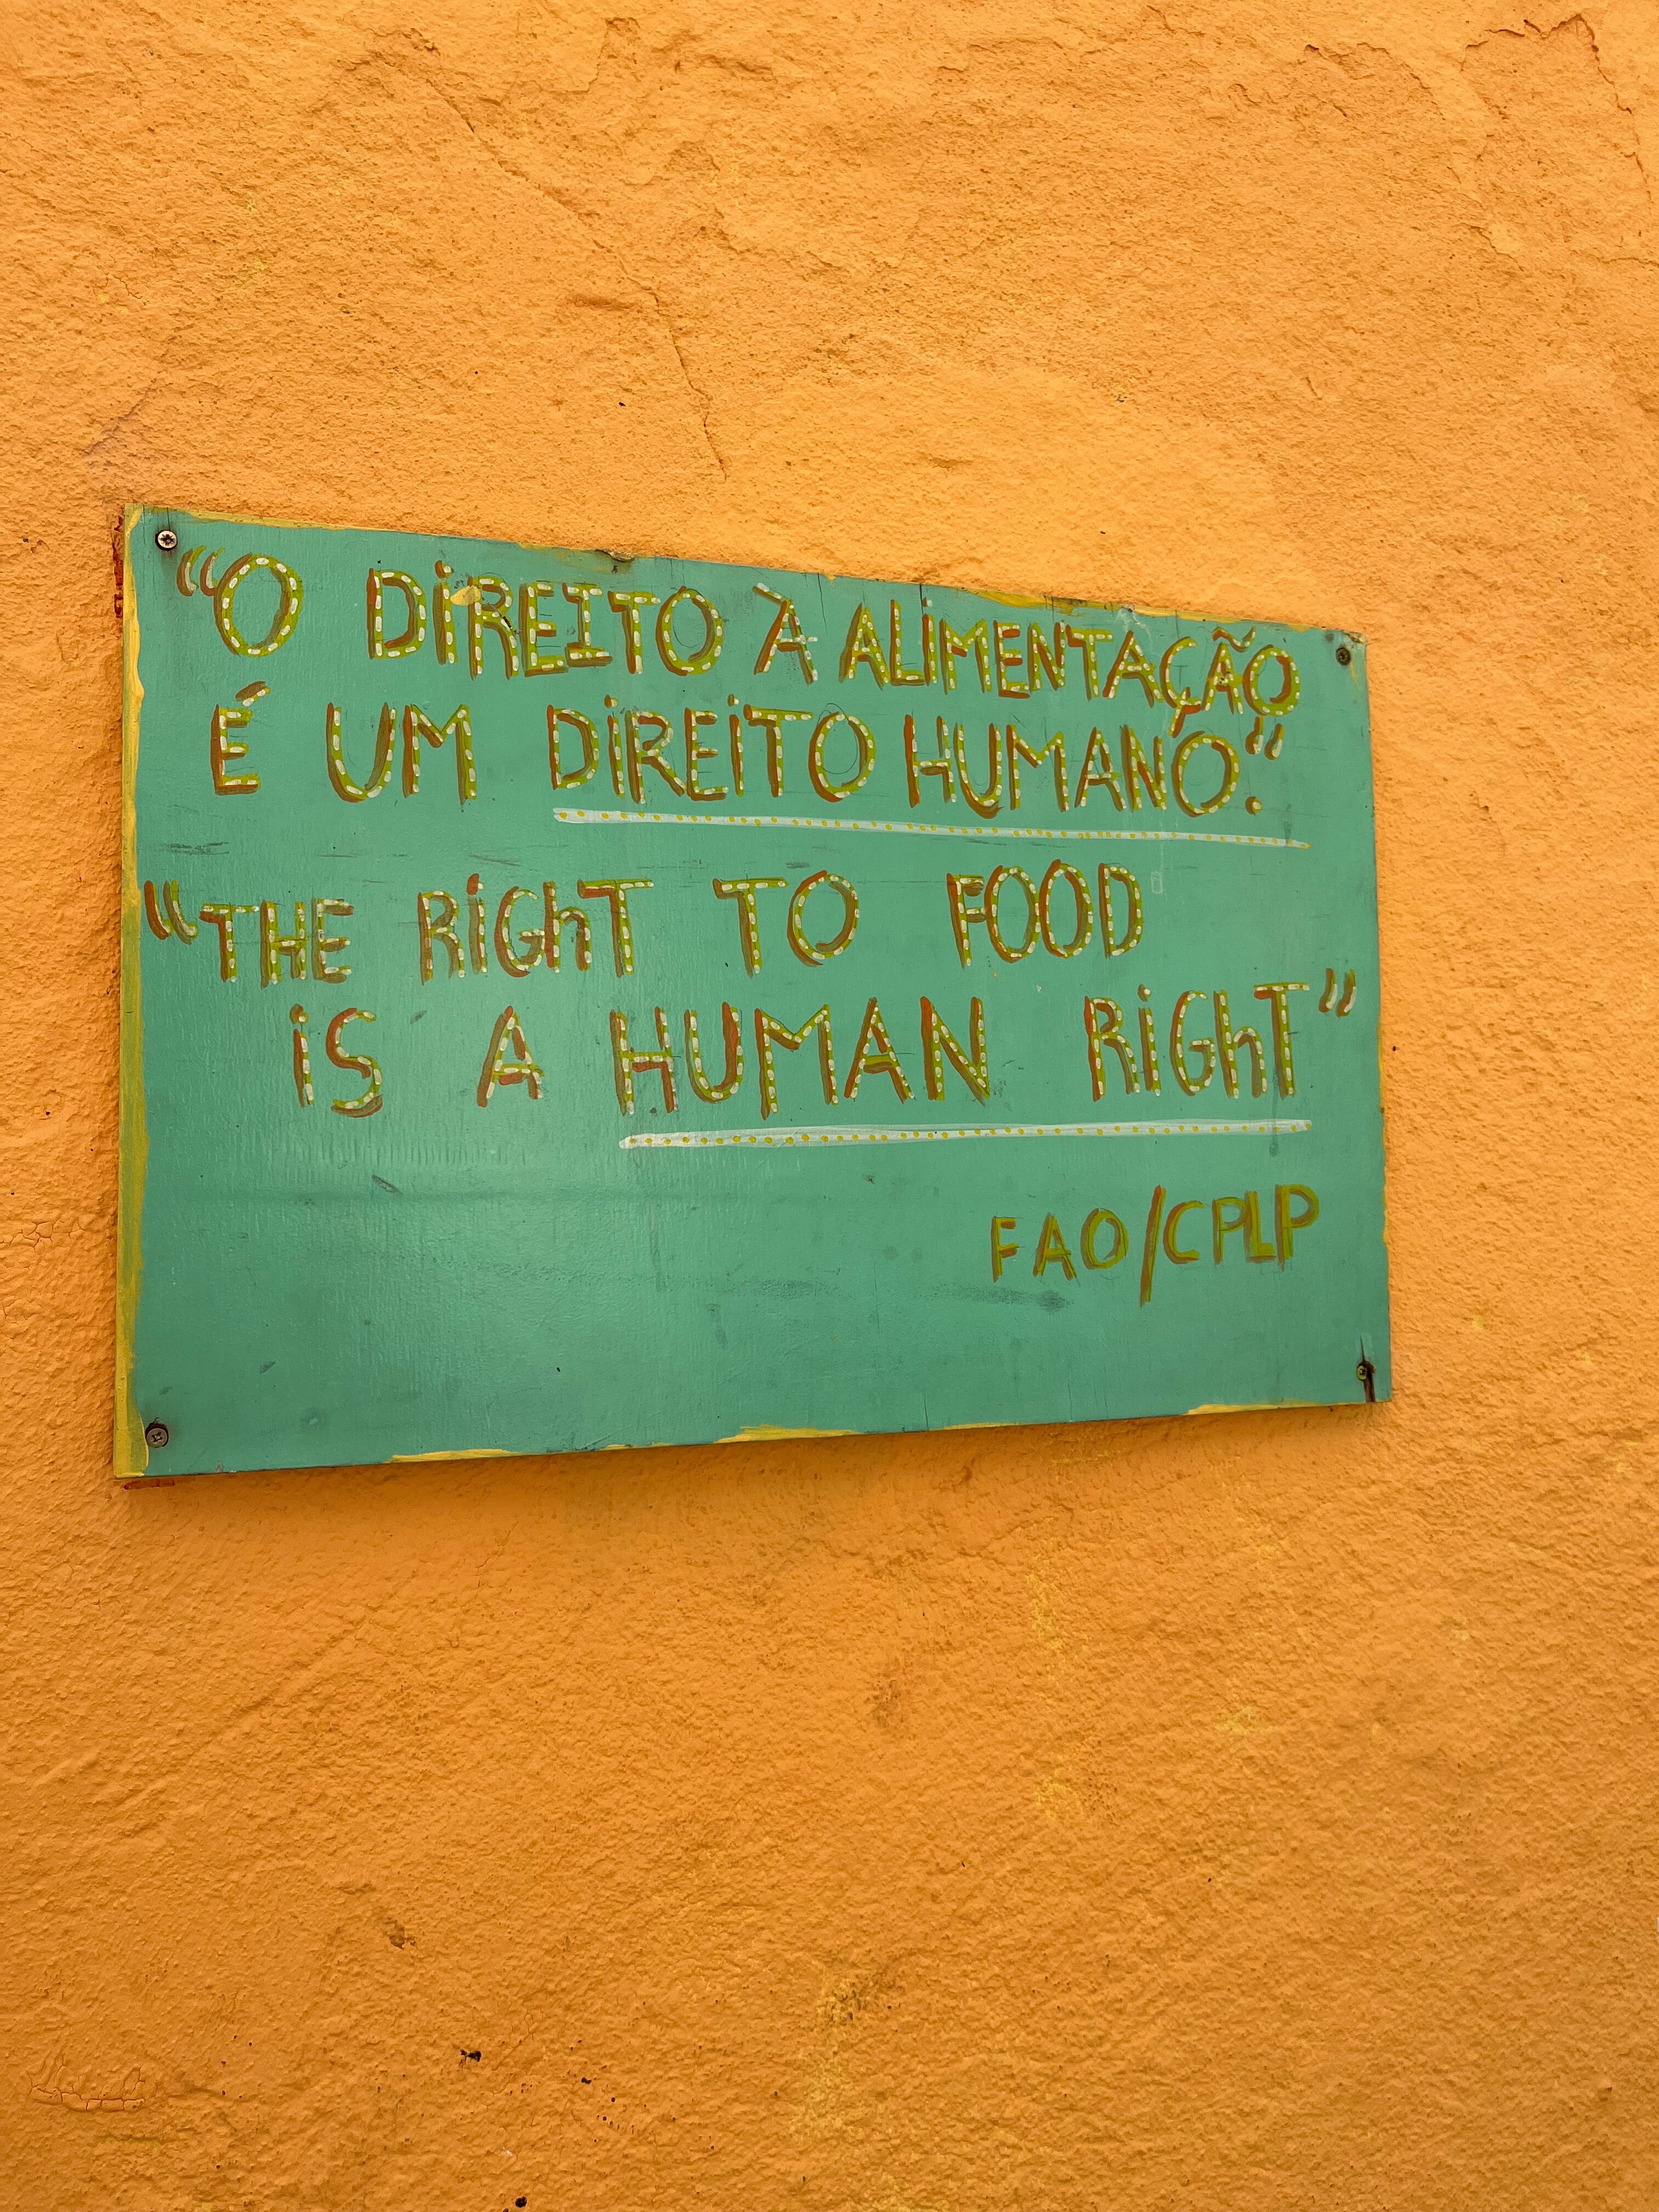 “O DiREITO À ALiMENTAÇÃO
É UM DiREiTO HUMANO.”
“THE RiGhT TO FOOD
iS A HUMAN RiGhT”
FAO/CPLP